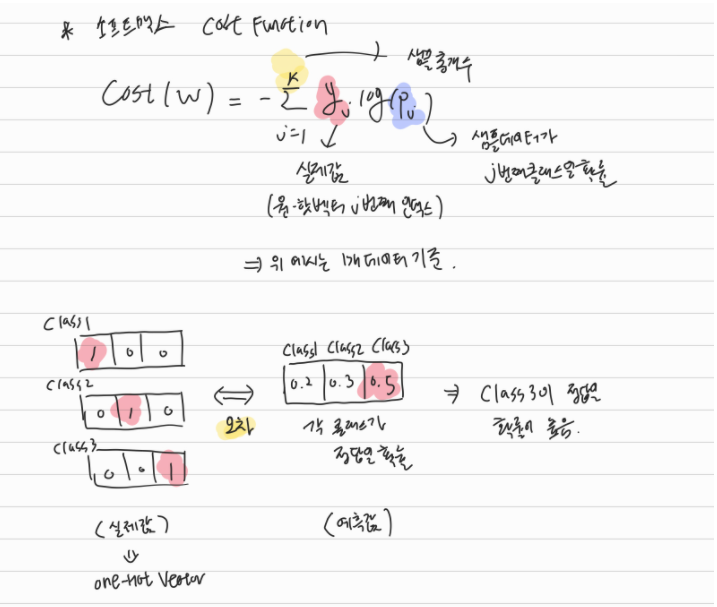 * 소프트맥스 Cost Function
샘플 총개수
Cost(W) = - K Σ j=1 yj log(pj)
실제값
(원-핫벡터 j번째 인덱스)
샘플데이터가
j번째 클래스일 확률
⇒ 위 예시는 1개 데이터 기준.
Class1
1 0 0
Class2
0 1 0
Class3
0 0 1
(실제값)
⇓
one-Hot Vector
⇔
오차
Class1 Class2 Class3
0.2 0.3 0.5
각 클래스가
정답일 확률
(예측값)
⇒ Class3이 정답일
확률이 높음.